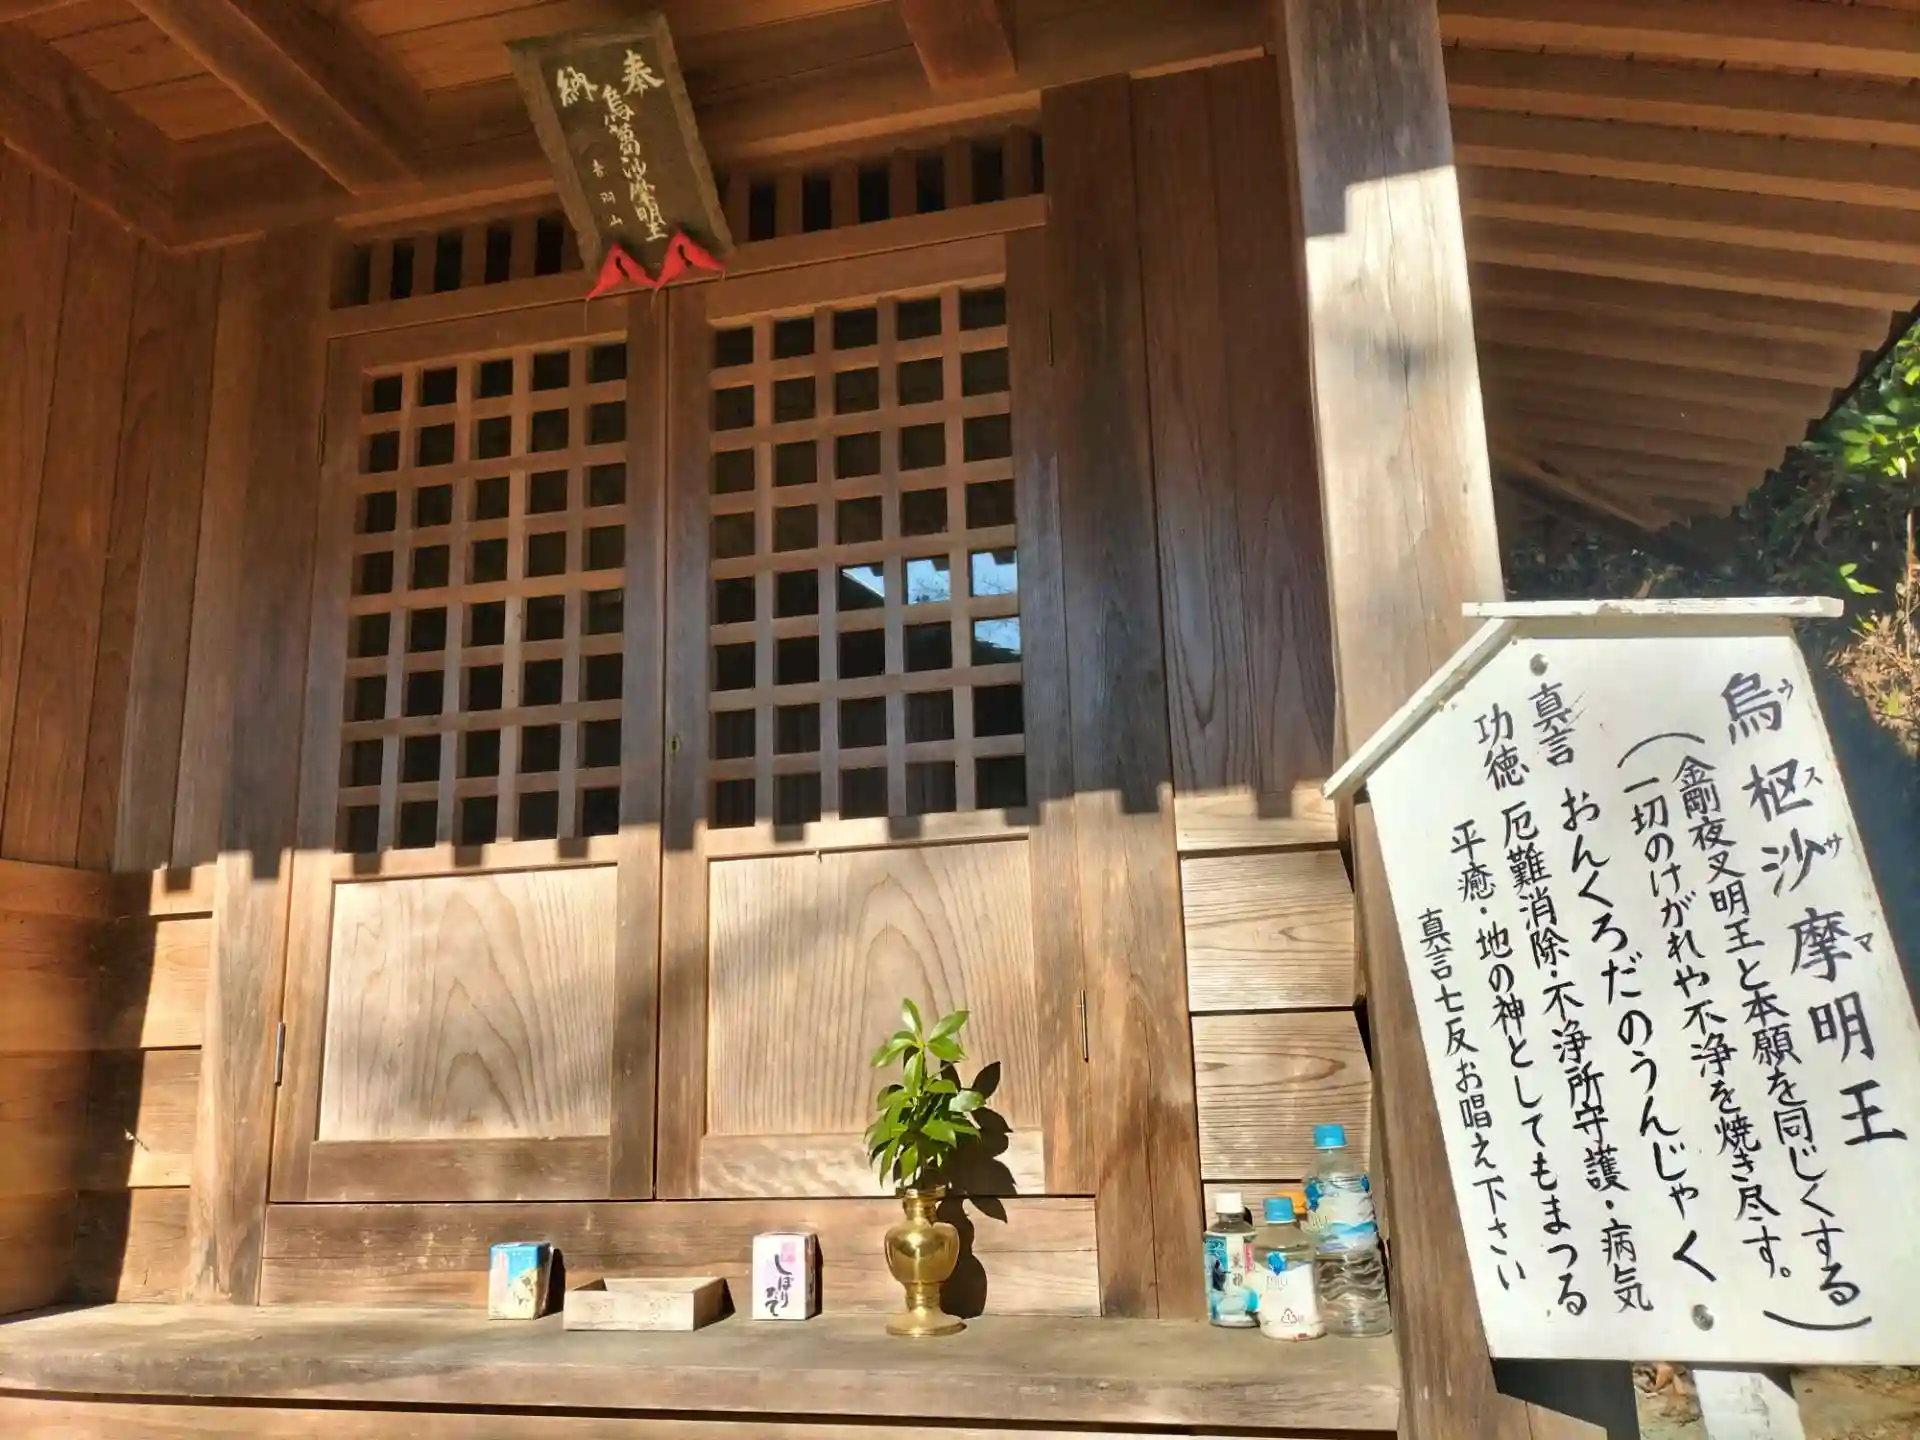 奉納
烏蒭沙摩明王
音羽山
烏枢沙摩明王
ウスサマ
(金剛夜叉明王と本願を同じくする
一切のけがれや不浄を焼き尽す。)
真言 おんくろだのうんじゃく
功徳 厄難消除・不浄所守護・病気
平癒・地の神としてもまつる
真言七反お唱え下さい
しぼりたて